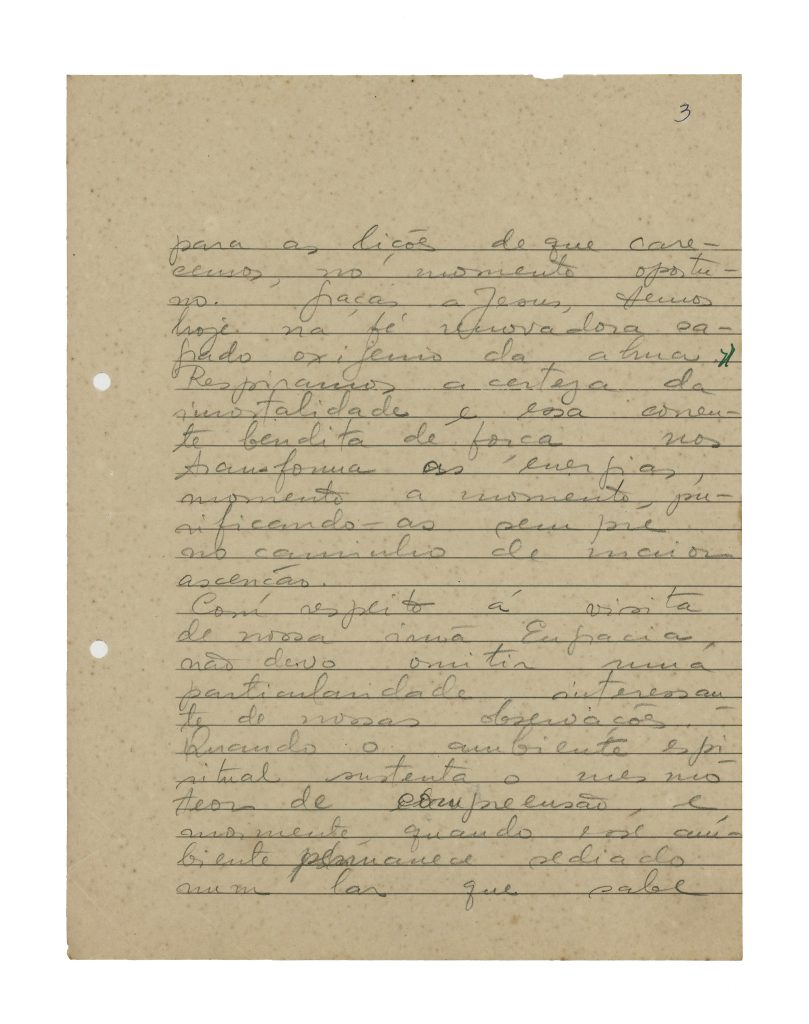 3
para as lições de que care-
cemos, no momento oportu-
no. Graças a Jesus, temos
hoje na fé renovadora sa-
grado oxigenio da alma.
Respiramos a certeza da
imortalidade e essa corren-
te bendita de força nos
transforma as energias,
momento a momento, pu-
rificando-as sempre
no caminho de maior
ascenção.
Com respeito á visita
de nossa irmã Engracia,
não devo omitir uma
particularidade interessan
te de nossas observações. -
Quando o ambiente espi
ritual sustenta o mesmo
teor de compreensão, e
mormente quando esse am-
biente permanece sediado
num lar que sabe